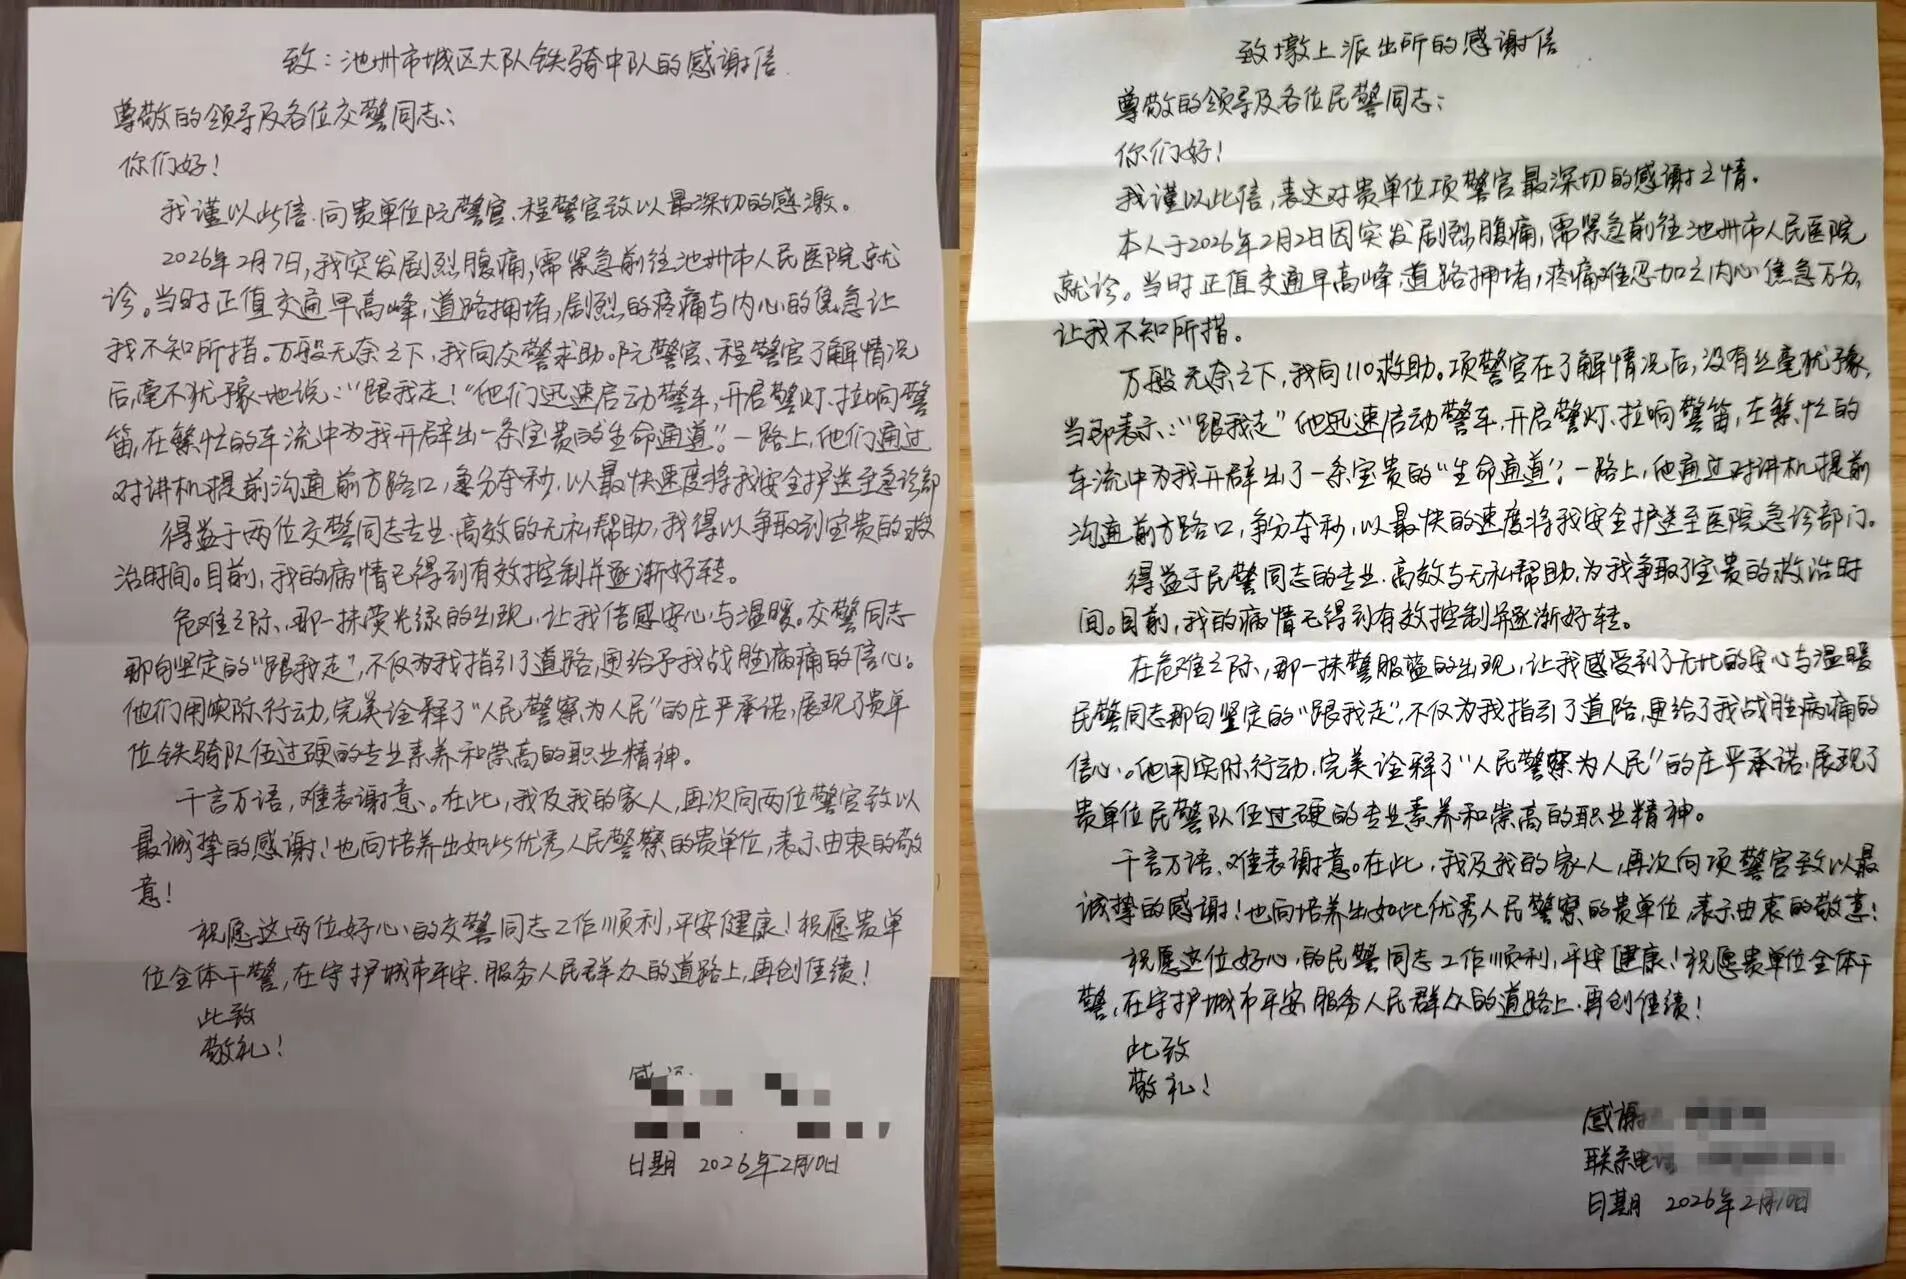 致：池州市城区大队铁骑中队的感谢信
尊敬的领导及各位交警同志：
你们好！
我谨以此信.向贵单位阮警官、程警官致以最深切的感激。
2026年2月7日,我突发剧烈腹痛,需紧急前往池州市人民医院就
诊。当时正值交通早高峰,道路拥堵,剧烈的疼痛与内心的焦急让
我不知所措。万般无奈之下,我向交警求助。阮警官、程警官了解情况
后,毫不犹豫地说："跟我走！"他们迅速启动警车,开启警灯、拉响警
笛,在繁忙的车流中为我开辟出一条宝贵的"生命通道"。一路上,他们通过
对讲机提前沟通前方路口,争分夺秒,以最快速度将我安全护送至急诊部
得益于两位交警同志专业.高效的无私帮助,我得以争取到宝贵的救
治时间。目前,我的病情已得到有效控制并逐渐好转。
危难之际,那一抹荧光绿的出现,让我倍感安心与温暖。交警同志
那句坚定的"跟我走",不仅为我指引了道路,更给予我战胜病痛的信心。
他们用实际行动,完美诠释了"人民警察为人民"的庄严承诺,展现了贵单
位铁骑队伍过硬的专业素养和崇高的职业精神。
千言万语,难表谢意。在此,我及我的家人,再次向两位警官致以
最诚挚的感谢！也向培养出如此优秀人民警察的贵单位,表示由衷的敬
意！
祝愿这两位好心的交警同志工作顺利,平安健康！祝愿贵单
位全体干警,在守护城市平安.服务人民群众的道路上,再创佳绩！
此致
敬礼！
日期 2026年2月10日
致墩上派出所的感谢信
尊敬的领导及各位民警同志：
你们好！
我谨以此信,表达对贵单位项警官最深切的感谢之情。
本人于2026年2月2日因突发剧烈腹痛,需紧急前往池州市人民医院
就诊。当时正值交通早高峰,道路拥堵,疼痛难忍加之内心焦急万分,
让我不知所措。
万般无奈之下,我向110求助。项警官在了解情况后,没有丝毫犹豫,
当即表示："跟我走"他迅速启动警车,开启警灯、拉响警笛,在繁忙的
车流中为我开辟出了一条宝贵的"生命通道"。一路上,他通过对讲机提前
沟通前方路口,争分夺秒,以最快的速度将我安全护送至医院急诊部门。
得益于民警同志的专业.高效与无私帮助,为我争取了宝贵的救治时
间。目前,我的病情已得到有效控制并逐渐好转。
在危难之际,那一抹警服蓝的出现,让我感受到了无比的安心与温暖
民警同志那句坚定的"跟我走",不仅为我指引了道路,更给了我战胜病痛的
信心。他用实际行动,完美诠释了"人民警察为人民"的庄严承诺,展现了
贵单位民警队伍过硬的专业素养和崇高的职业精神。
千言万语、难表谢意。在此,我及我的家人,再次向项警官致以最
诚挚的感谢！也向培养出如此优秀人民警察的贵单位,表示由衷的敬意！
祝愿这位好心的民警同志工作顺利,平安健康！祝愿贵单位全体干
警,在守护城市平安,服务人民群众的道路上.再创佳绩！
此致
敬礼！
感谢
联系电话
日期 2026年2月10日